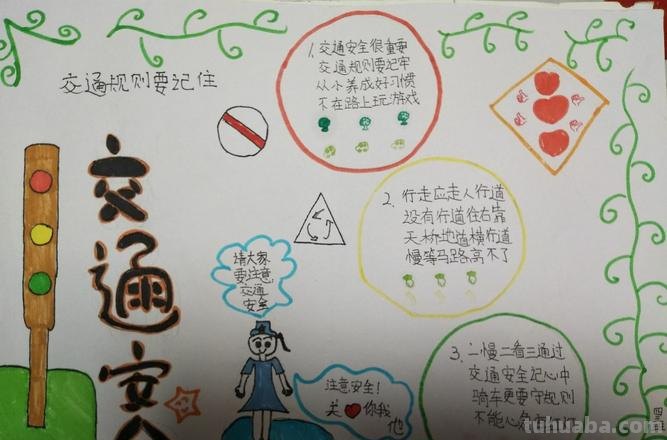 交通规则要记住
交通安
1. 交通安全很重要
交通规则要记牢
从小养成好习惯
不在路上玩游戏
2. 行走应走人行道
没有行道往右靠
天桥地道横行道
慢等马路离不了
请大家
要注意
交通
安全
注意安全!
关你我
他
3. 二慢二看三通过
交通安全记心中
骑车更要守规则
不能心急
tuhuaba.com